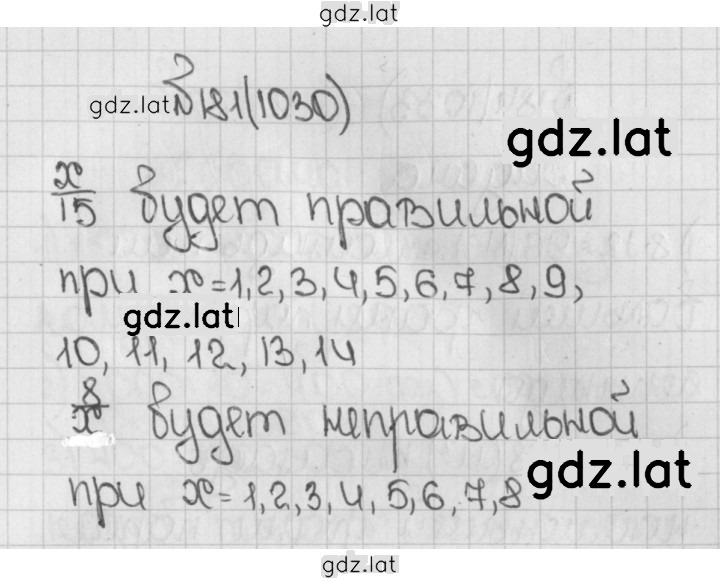 gdz.lat
gdz.lat №181(1030)
gdz.lat
x/15 будет правильной
при x=1,2,3,4,5,6,7,8,9,
gdz.lat
10, 11, 12, 13, 14
8/x будет неправильной
gdz.lat
при x=1,2,3,4,5,6,7,8
gdz.lat